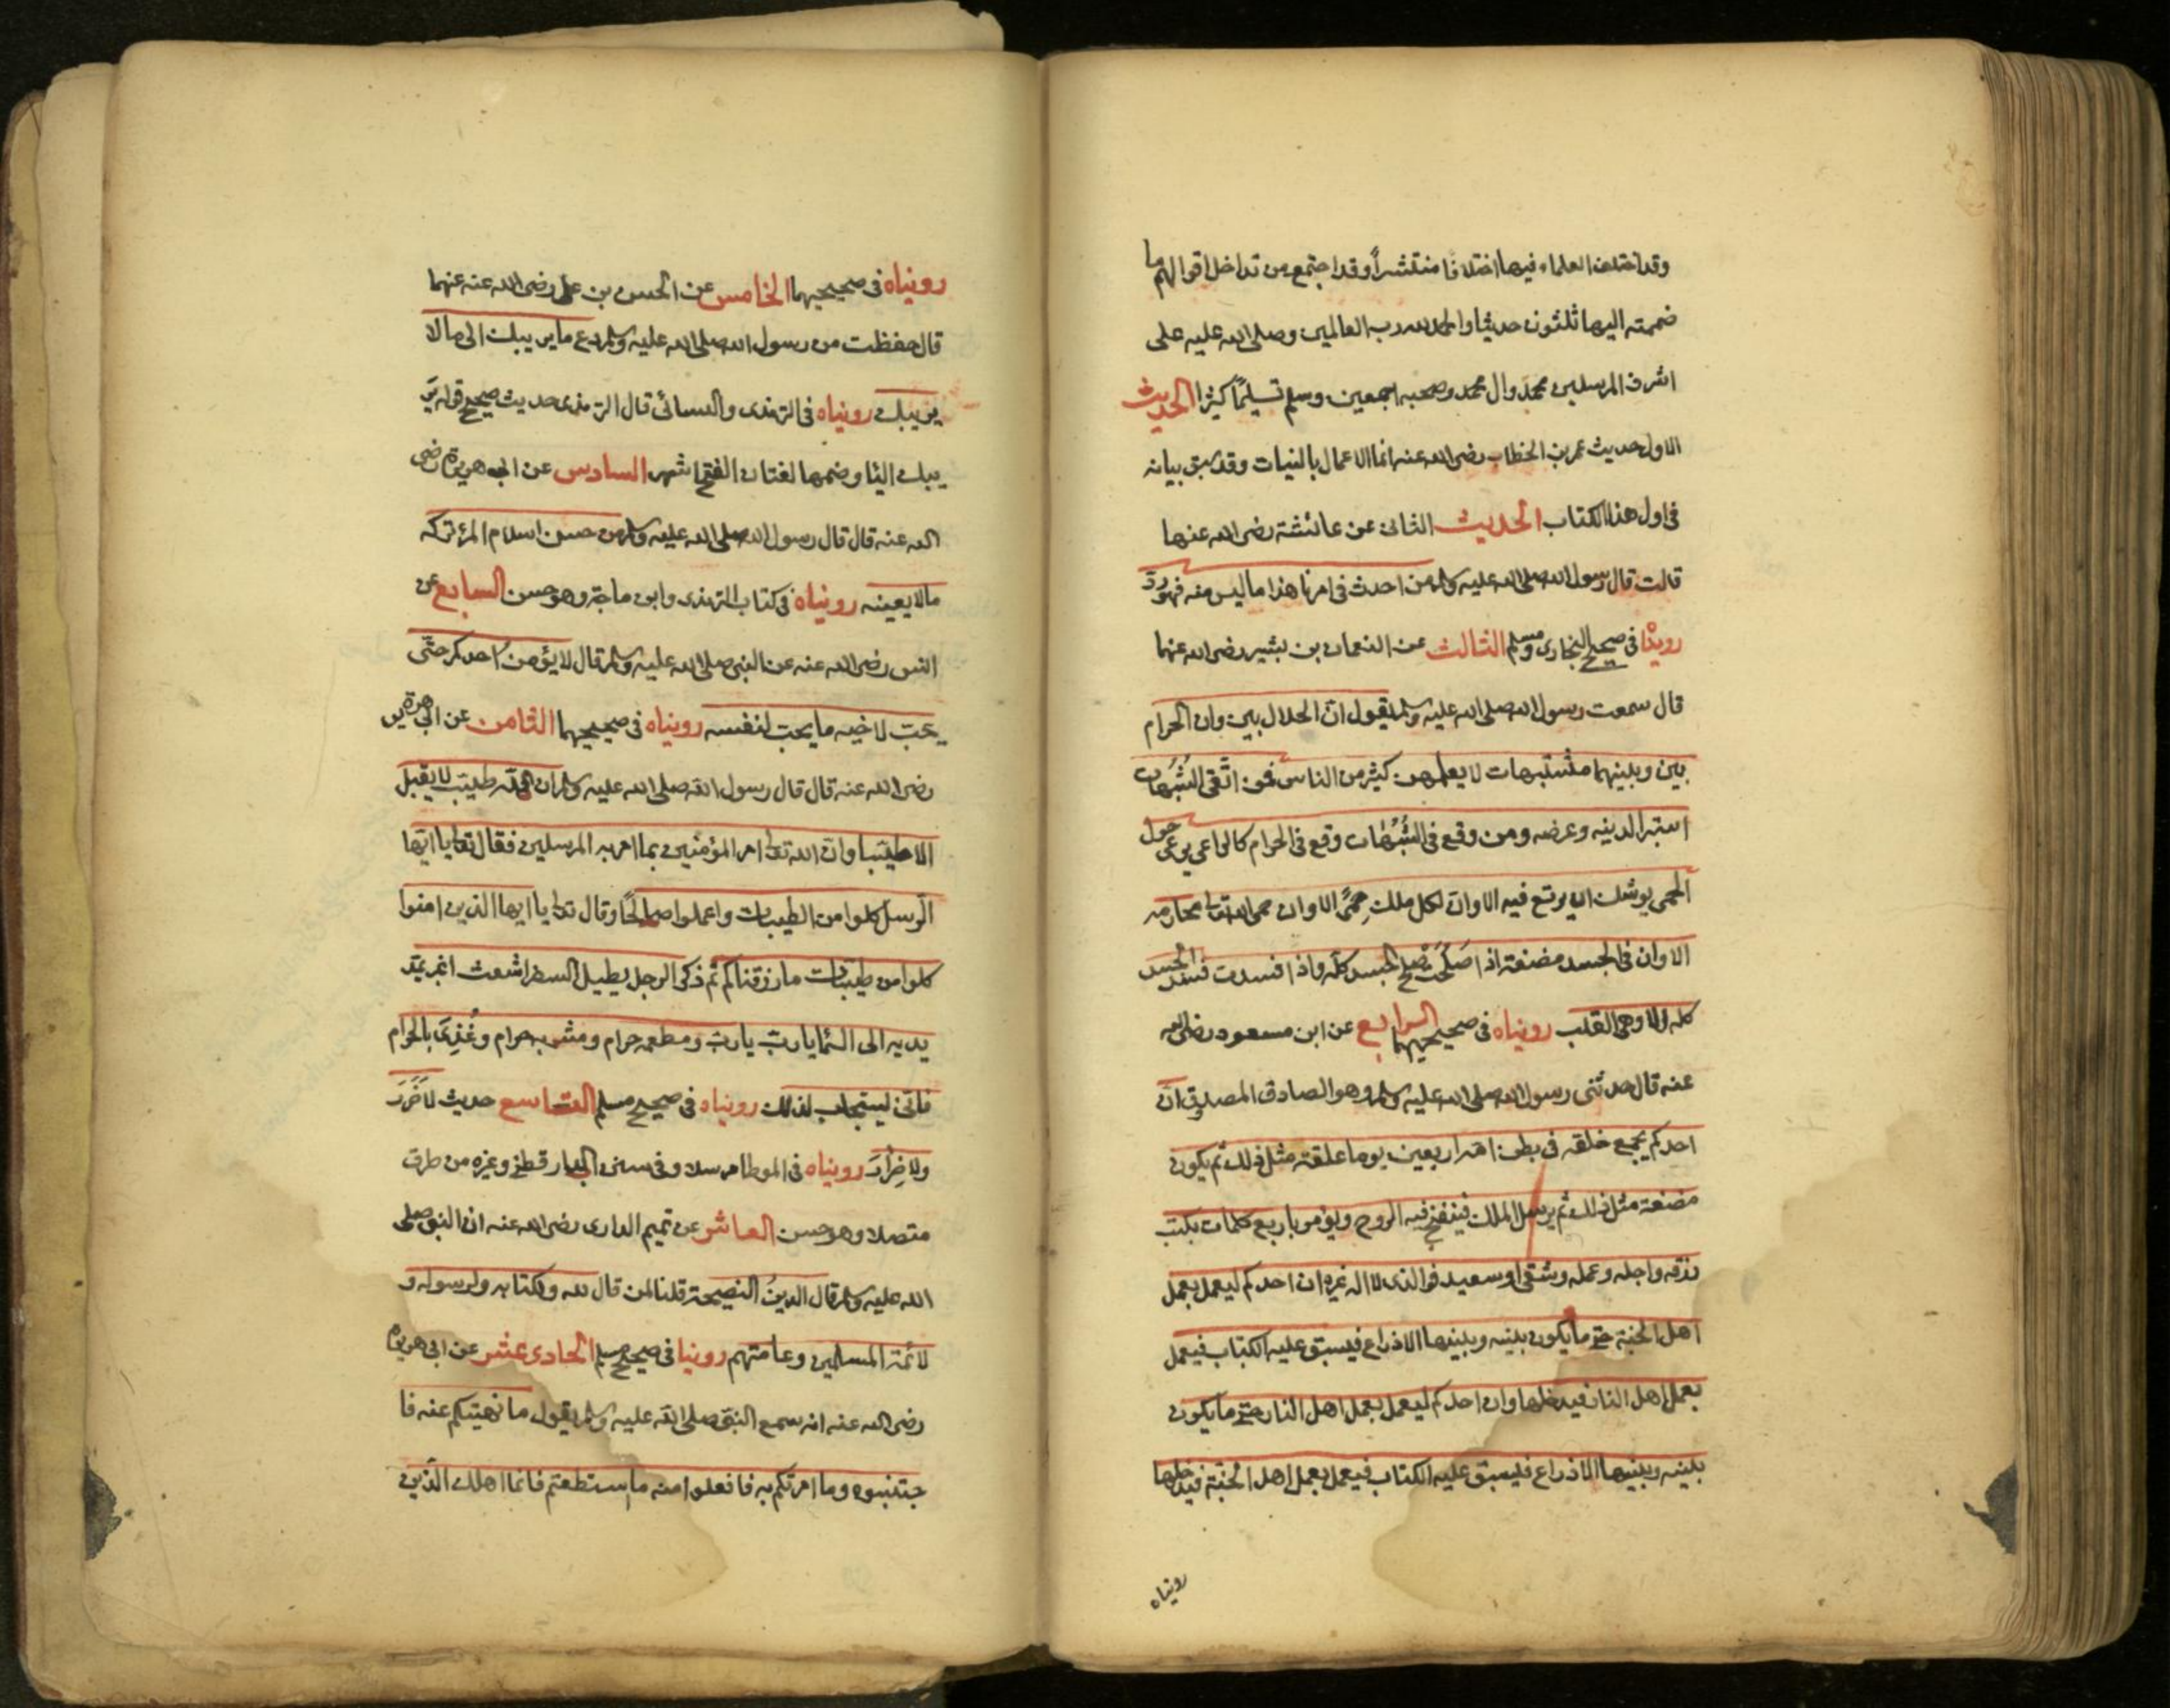 وقد اختلف العلماء فيها اختلافا منتشراً وقد اجتمع من تداخل اقوالهم ما
ضممته اليها ثلثون حديثا والحمد لله رب العالمين وصلى الله عليه على
اشرف المرسلين محمد وال محمد وصحبه اجمعين وسلم تسليمًا كثيرا الحديث
الاول حديث عمر بن الخطاب رضى الله عنه انما الاعمال بالنيات وقد سبق بيانه
فى اول هذا الكتاب الحديث الثانى عن عائشة رضى الله عنها
قالت قال رسول الله صلى الله عليه وسلم من احدث فى امرنا هذا ما ليس منه فهو ردّ
رويناه فى صحيح البخارى ومسلم الثالث عن النعمان بن بشير رضى الله عنهما
قال سمعت رسول الله صلى الله عليه وسلم يقول انّ الحلال بين وان الحرام
بين وبينهما مشتبهات لا يعلمهن كثير من الناس فمن اتّقى الشُبُهات
استبرا لدينه وعرضه ومن وقع فى الشُبُهات وقع فى الحرام كالراعى يرعى حول
الحمى يوشك ان يرتع فيه الا وانّ لكل ملك حِمىً الا وان حمى الله تعالى محارمه
الا وان فى الجسد مضغة اذا صَلَحَتْ صَلَحَ الجسد كلّه واذا فسدت فسد الجسد
كله الا وهى القلب رويناه فى صحيحيهما الرابع عن ابن مسعود رضى الله
عنه قال حدثنى رسول الله صلى الله عليه وسلم وهو الصادق المصدوق انّ
احدكم يجمع خلقه فى بطن امه اربعين يوما علقة مثل ذلك ثم يكون
مضغة مثل ذلك ثم يرسل الملك فينفخ فيه الروح ويؤمر باربع كلمات بكتب
رزقه واجله وعمله وشقى او سعيد فوالذى لا اله غيره ان احدكم ليعمل بعمل
اهل الجنة حتى ما يكون بينه وبينها الا ذراع فيسبق عليه الكتاب فيعمل
بعمل اهل النار فيدخلها وان احدكم ليعمل بعمل اهل النار حتى ما يكون
بينه وبينها الا ذراع فيسبق عليه الكتاب فيعمل بعمل اهل الجنة فيدخلها
رويناه
رويناه فى صحيحيهما الخامس عن الحسن بن على رضى الله عنه عنهما
قال حفظت من رسول الله صلى الله عليه وسلم دع ما يريبك الى ما لا
يريبك رويناه فى الترمذى والنسائى قال الترمذى حديث صحيح قوله يَر
يبك اليا وضمها لغتان الفتح اشهر السادس عن ابى هريرة رضى
الله عنه قال قال رسول الله صلى الله عليه وسلم من حسن اسلام المرء تركه
ما لا يعينه رويناه فى كتاب الترمذى وابن ماجة وهو حسن السابع عن
انس رضى الله عنه عن النبى صلى الله عليه وسلم قال لا يؤمن احدكم حتّى
يحبّ لاخيه ما يحب لنفسه رويناه فى صحيحيهما الثامن عن ابى هريرة
رضى الله عنه قال قال رسول الله صلى الله عليه وسلم ان الله طيّب لا يقبل
الا طيّبا وان الله تعالى امر المؤمنين بما امر به المرسلين فقال تعالى يا ايّها
الرّسل كلوا من الطيبات واعملوا صالحًا وقال تعالى يا ايها الذين امنوا
كلوا من طيّبات ما رزقناكم ثم ذكر الرجل يطيل السفر اشعث اغبر يمدّ
يديه الى السّما يا ربّ يا ربّ ومطعمه حرام ومشربه حرام وغُذِىَ بالحرام
فانّى يستجاب لذلك رويناه فى صحيح مسلم التاسع حديث لا ضَرَرَ
ولا ضِرَارَ رويناه فى الموطا مرسلا وفى سنن الدارقطنى وغيره من طرق
متصلا وهو حسن العاشر عن تميم الدارى رضى الله عنه ان النبى صلى
الله عليه وسلم قال الدينُ النصيحة قلنا لمن قال لله ولكتابه ولرسوله و
لائمّة المسلمين وعامتهم روينا فى صحيح مسلم الحادى عشر عن ابى هريرة
رضى الله عنه انه سمع النبى صلى الله عليه وسلم يقول ما نهيتكم عنه فا
جتنبوه وما امرتكم به فافعلوا منه ما استطعتم فانما اهلك الّذين